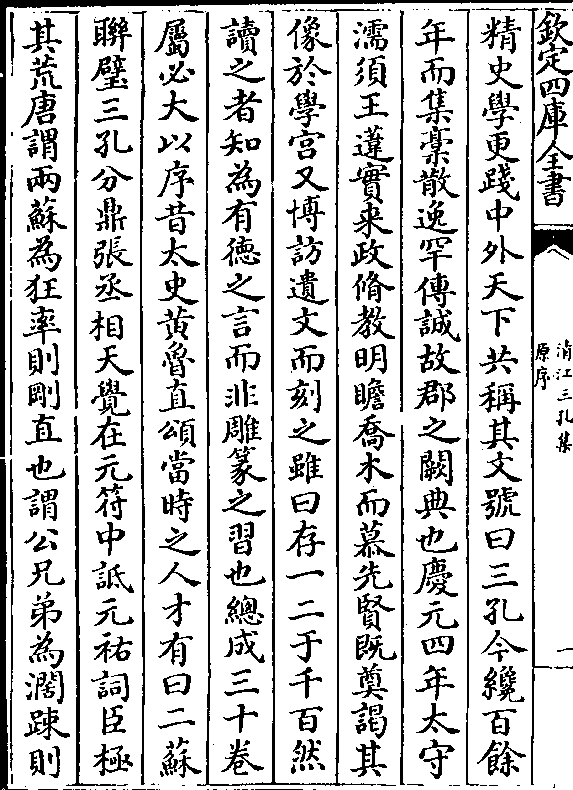 欽定四庫全書
清江三孔集
原序
一
精史學更踐中外天下共稱其文號曰三孔今纔百餘
年而集稾散逸罕傳誠故郡之闕典也慶元四年太守
濡須王䢿實来政脩教明瞻喬木而慕先賢既奠謁其
像於學宫又博訪遺文而刻之雖曰存一二于千百然
讀之者知為有德之言而非雕篆之習也總成三十卷
屬必大以序昔太史黄魯直頌當時之人才有曰二蘇
聨璧三孔分鼎張丞相天覺在元符中詆元祐詞臣極
其荒唐謂兩蘇為狂率則剛直也謂公兄弟為濶踈則